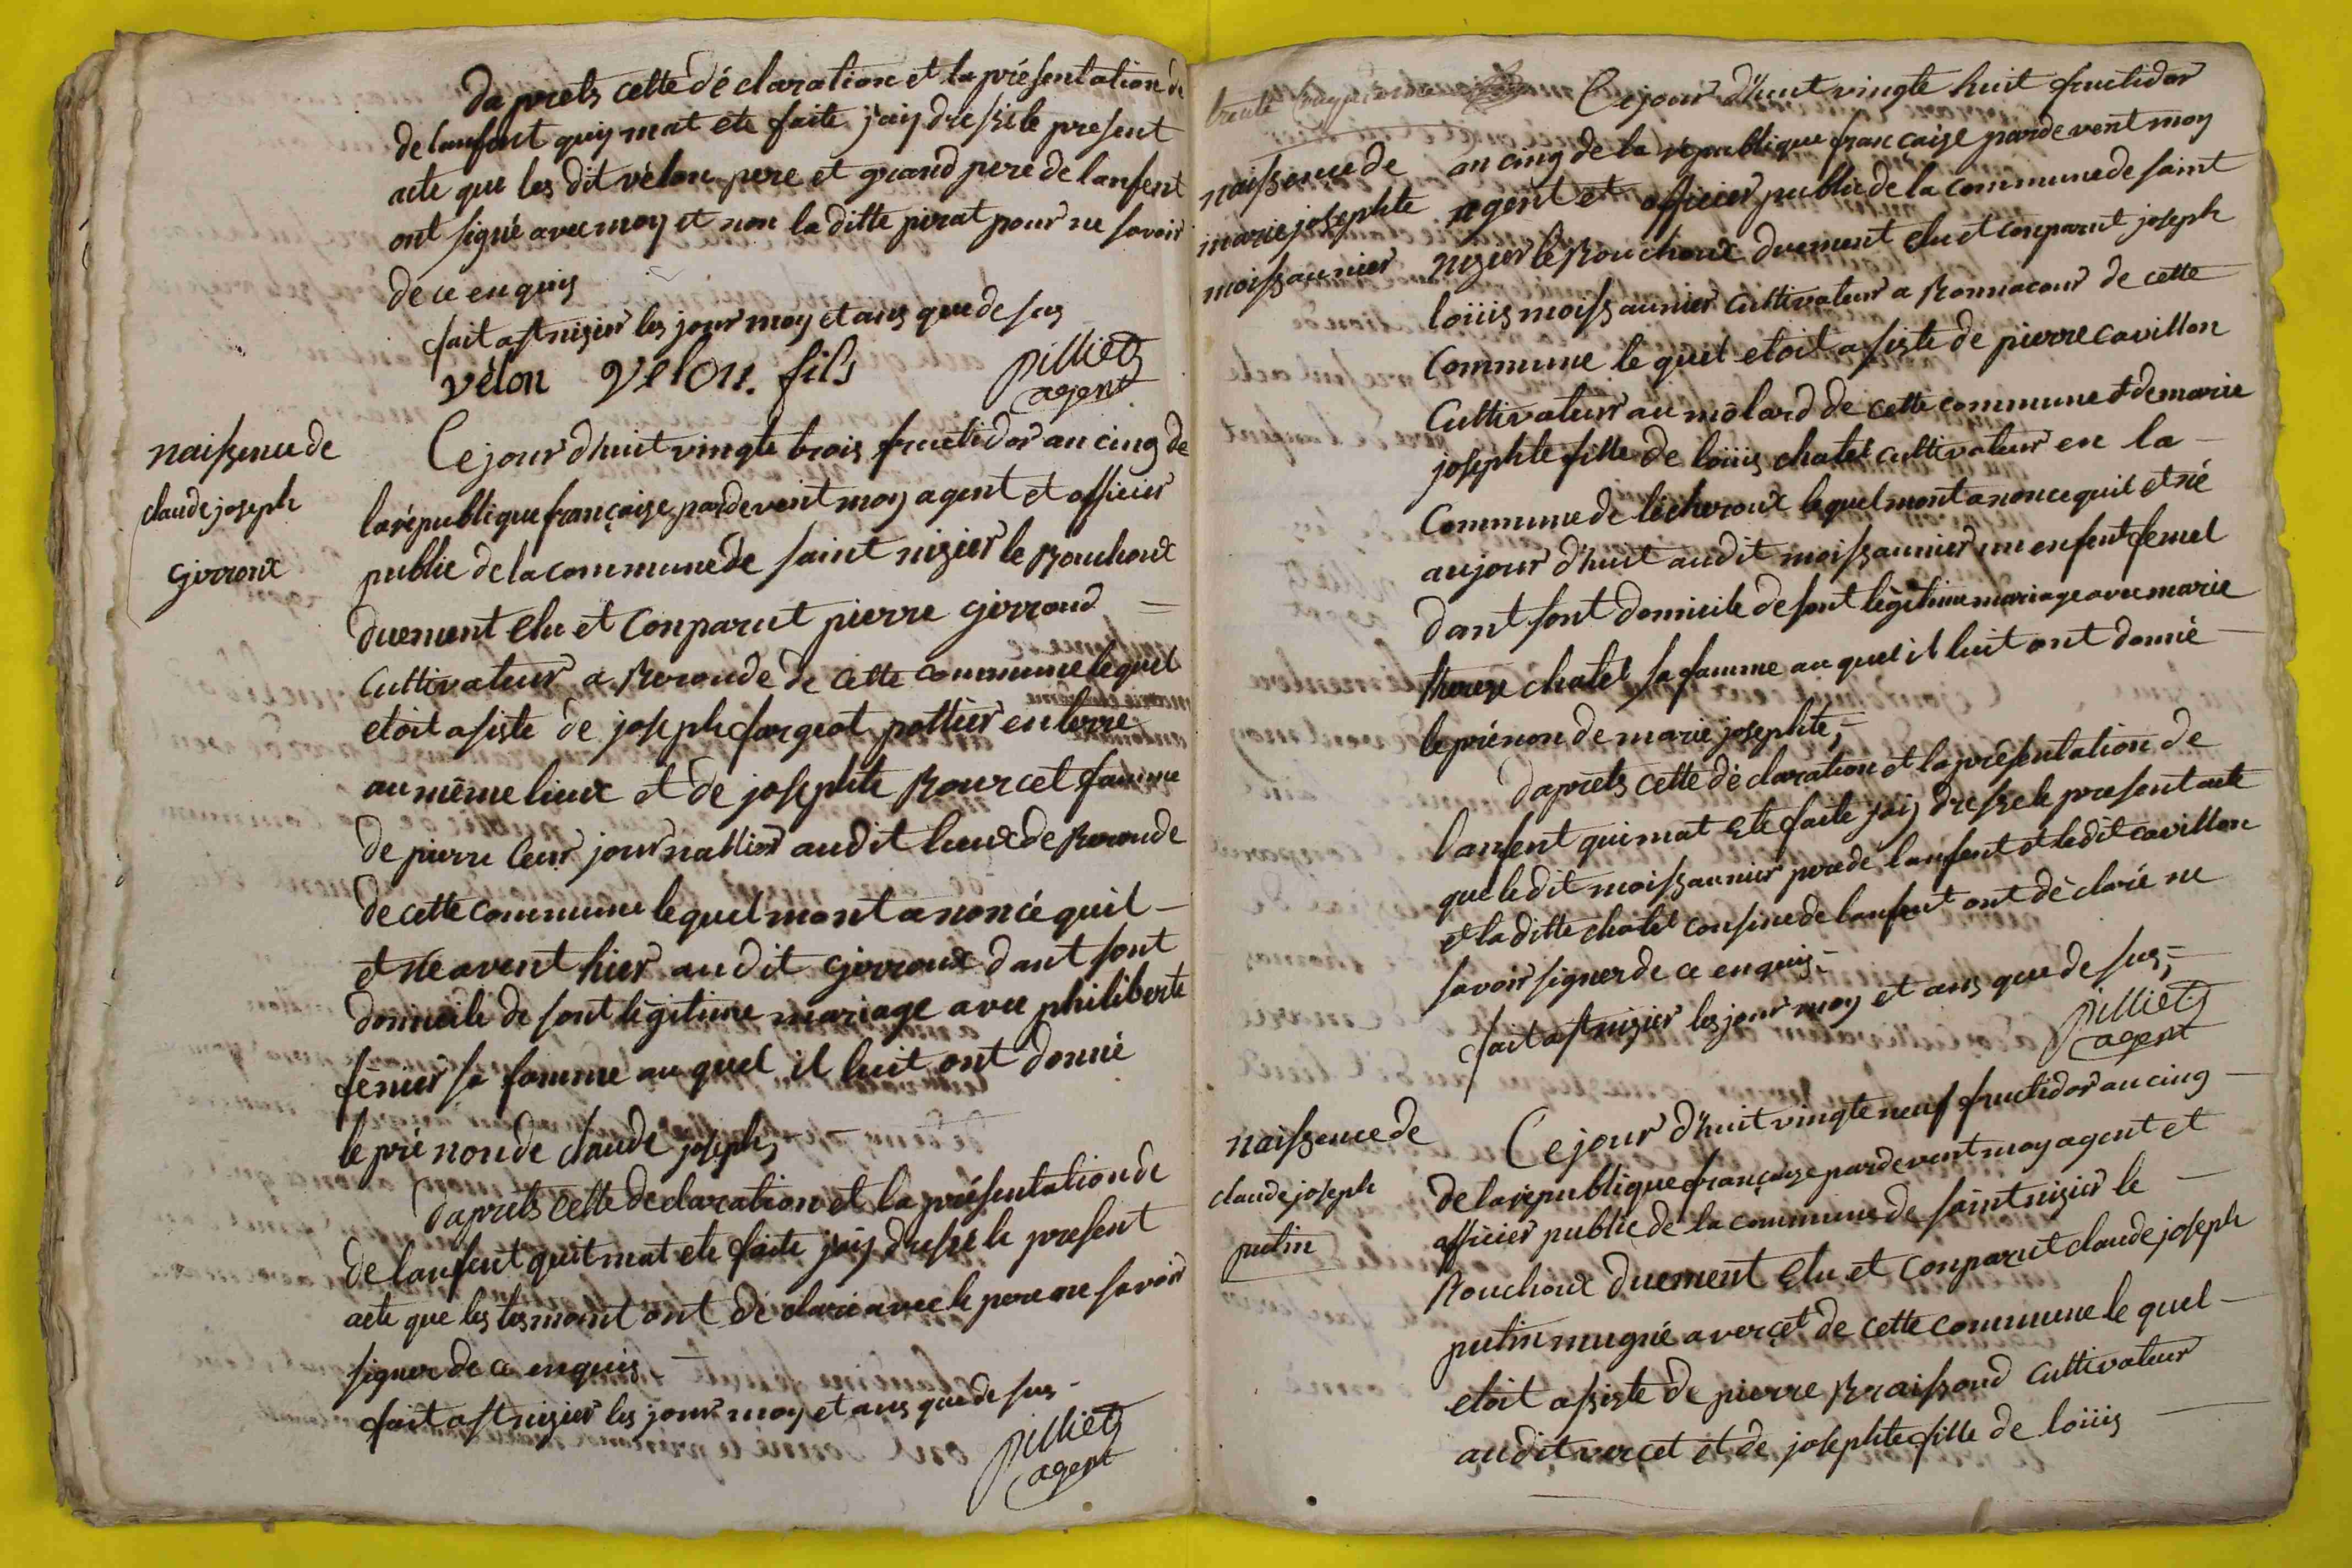 daprets cette déclaration et la présentation de
de lanfent quiy mat ete faite jaiy dressé le present
acte que les dit vélon pere et grand pere de lanfent
ont signé avec moy et non la ditte pirat pour ne savoir
de ce enquis
fait a st nisier les jour moy et ans que de sus
vélon velon. fils
pilliet
agent
naissence de
claude joseph
girroux
Ce jour d'huit vingte trois fructidor an cinq de
la république françaize pardevent moy agent et officier
public de la commune de saint nizier le Bouchoux
duement elu et conparut pierre girroud
cultivateur a Beronde de cette commune le quel
etoit asiste de joseph forgeot pottier en terre
au même lieux et de josephte Bourcet famme
de pierre Ceur journallier audit lieux de Beronde
de cette commune le quel mont anoncé quil
et né avent hier audit girroux dant sont
domicile de sont légitime mariage avec philiberte
fénier sa famme au quel il luit ont donné
le pré non de claude joseph,
daprets cette declaration et la présentation de
de lanfent quit mat ete faite jaiy dressé le present
acte que les tesmoint ont déclaré avec le pere ne savoir
signer de ce enquis
fait a st nizier les jour moy et ans que de sus
pilliet
agent
trente
naissence de
marie josephte
moissaunier
Ce jour d'huit vingte huit fructidor
an cinq de la république françaize pardevent moy
agent et officier public de la commune de saint
nizier le Bouchoux duement elu et conparut joseph
loüis moissaunier cultivateur a Romacour de cette
Commune le quel etoit asiste de pierre cavillon
Cultivateur au môlard de cette commune et de marie
josephte fille de loüis chatel cultivateur en la
Commune de lécheroux le quel mont anonce quil et né
aujour d'huit audit moissaunier un enfent femel
dant sont domicile de sont légitime mariage avec marie
thereze chatel sa famme au quel il luit ont donné
le prénon de marie josephte,
daprets cette déclaration et la présentation de
lanfent qui mat ete faite jaiy dressé le present acte
que le dit moissaunier pere de lanfent et ledit cavillon
et la ditte chatel cousine de lanfent ont déclaré ne
savoir signer de ce enquis
fait a st nizier les jour moy et ans que de sus,
pilliet
agent
naissence de
claude joseph
putin
Ce jour d'huit vingte neuf fructidor an cinq
de la république françaize pardevent moy agent et
officier public de la commune de saint nizier le
Bouchoux duement elu et conparut claude joseph
putin mugnié a vercet de cette commune le quel
etoit asiste de pierre Braissoud cultivateur
audit vercet et de josephte fille de loüis